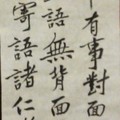 有事對面
語無背面
寄語諸仁